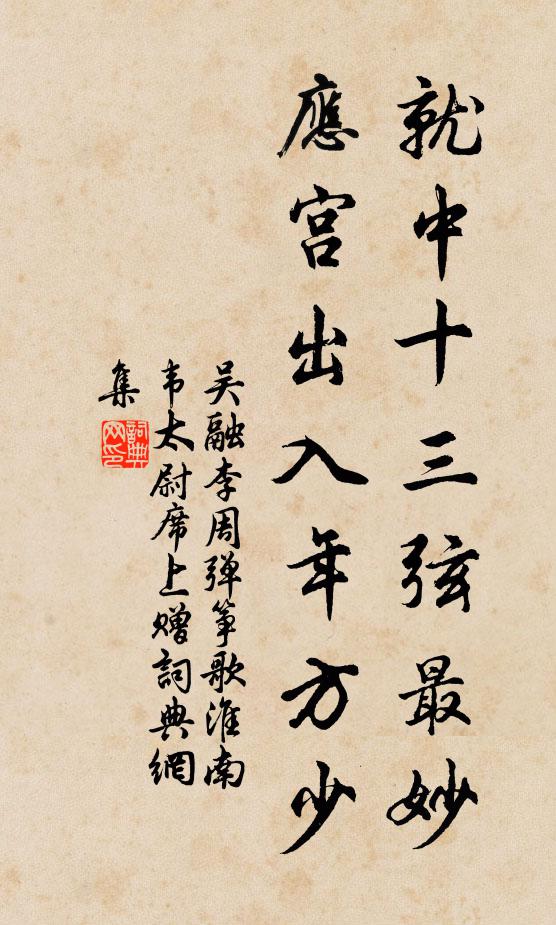 就中十三弦最妙
應宮出入年方少
吳融李周弹筝歌淮南
韦太尉席上赠詞典網
集
詞典
网印